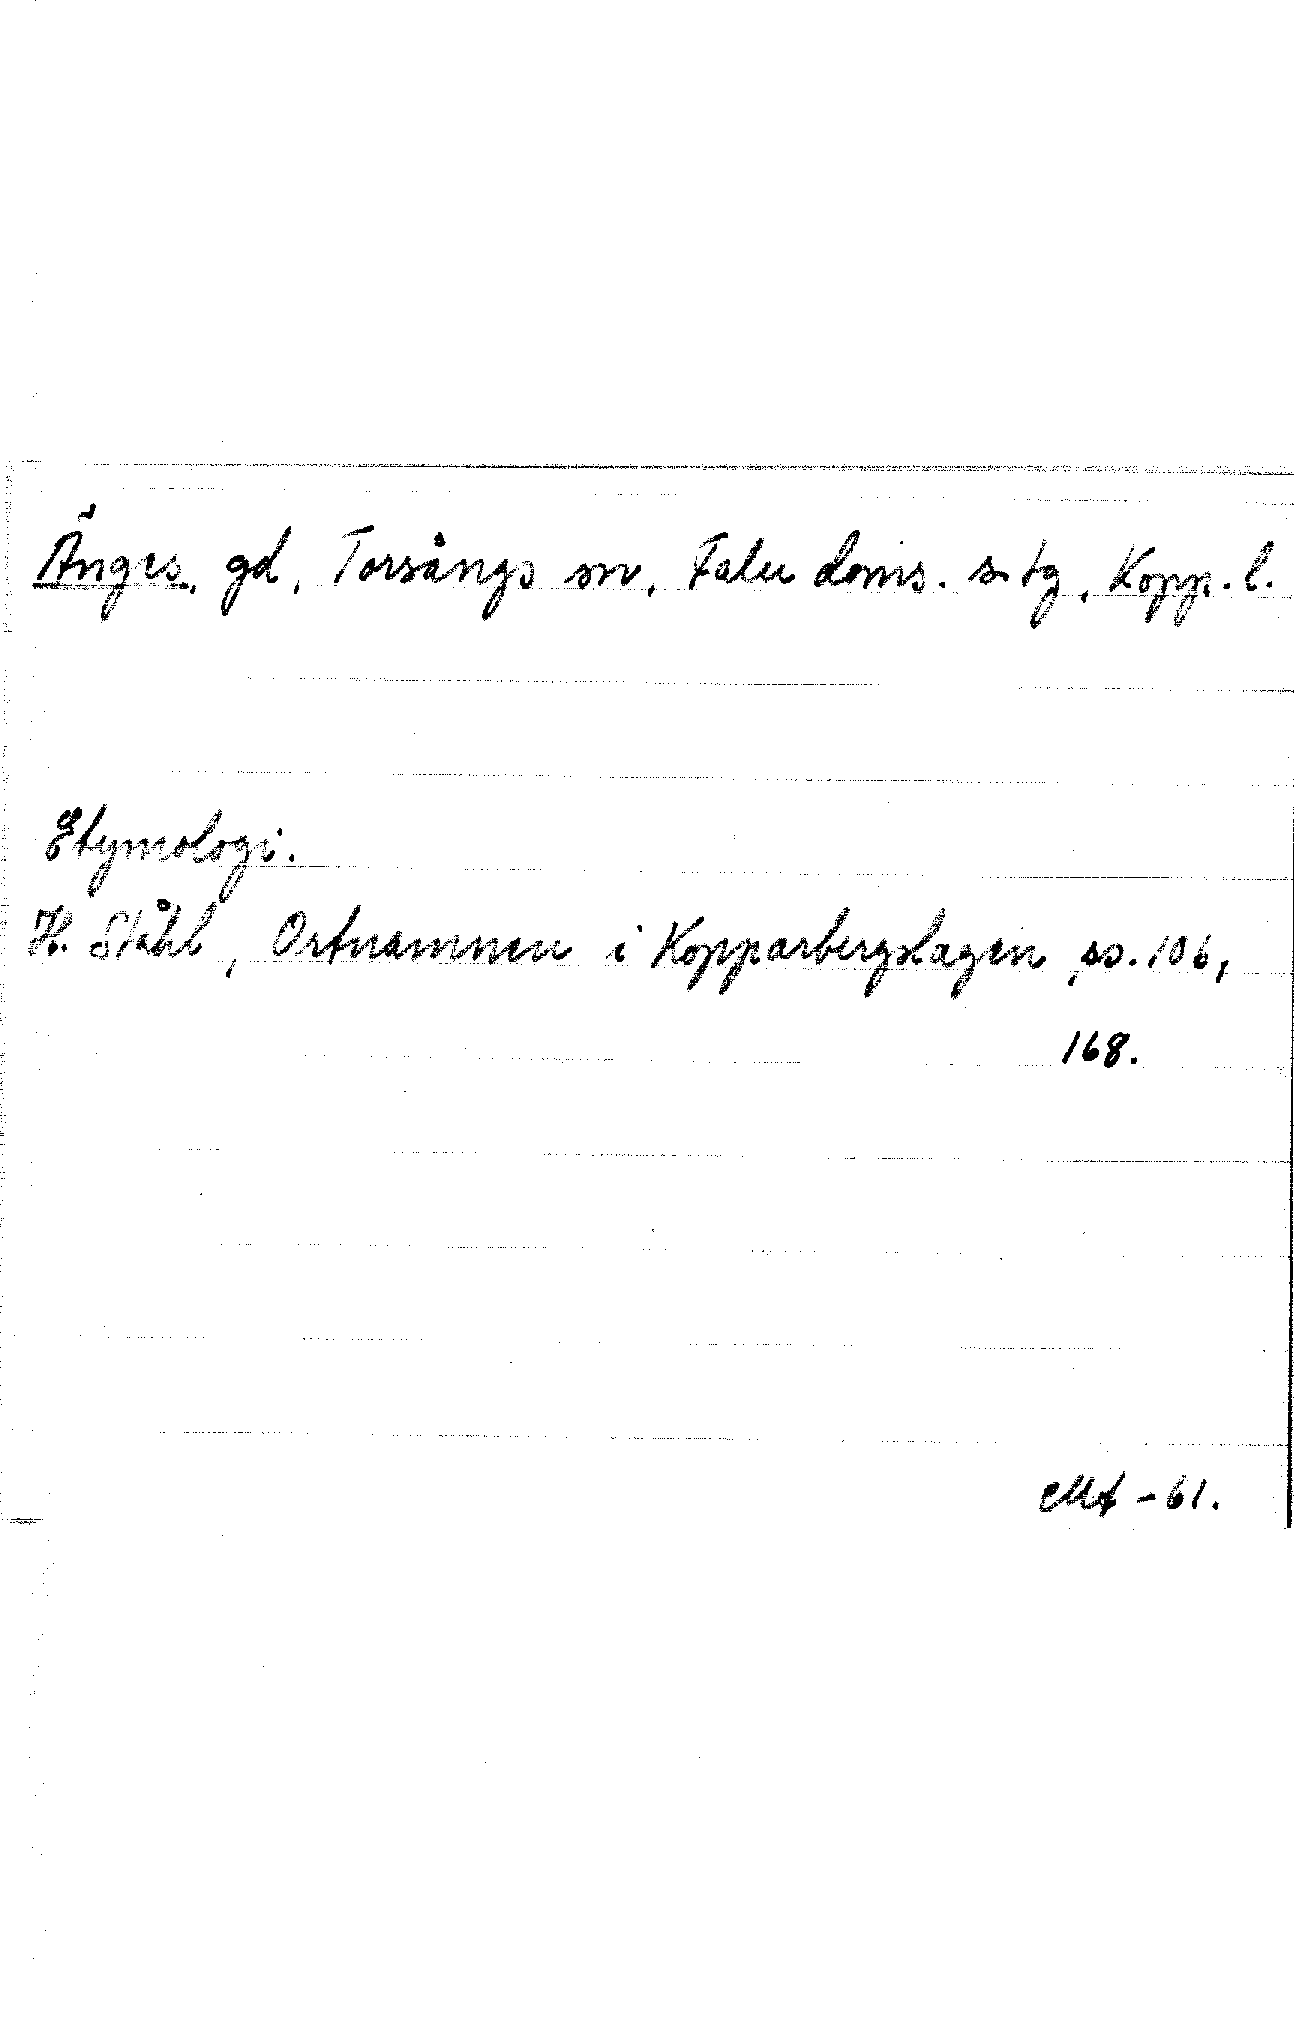 Änges, gd, Torsångs sn, Falu doms. s. tg, Kopp. l.
Etymologi.
H. Ståhl, Ortnamnen i Kopparbergslagen, ss. 106,
168.
-61.